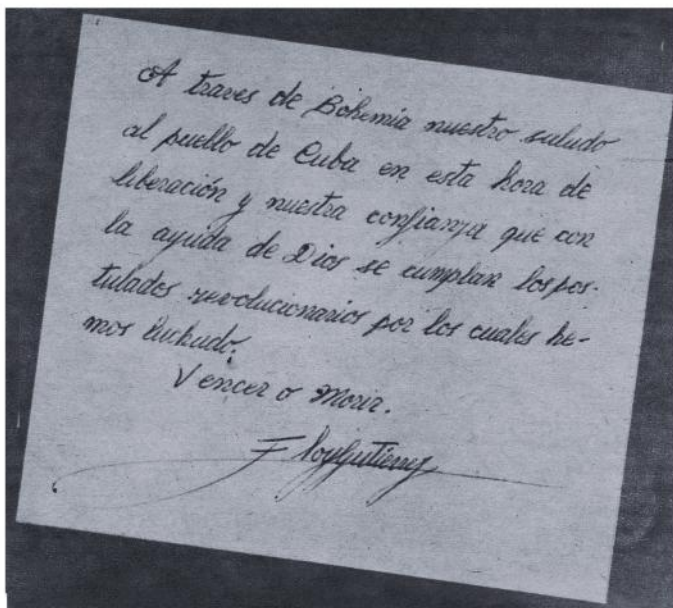 A traves de Bohemia nuestro saludo
al pueblo de Cuba en esta hora de
liberación y nuestra confianza que con
la ayuda de Dios se cumplan los pos-
tulados revolucionarios por los cuales he-
mos luchado.
Vencer o Morir.
EloyGutierrez